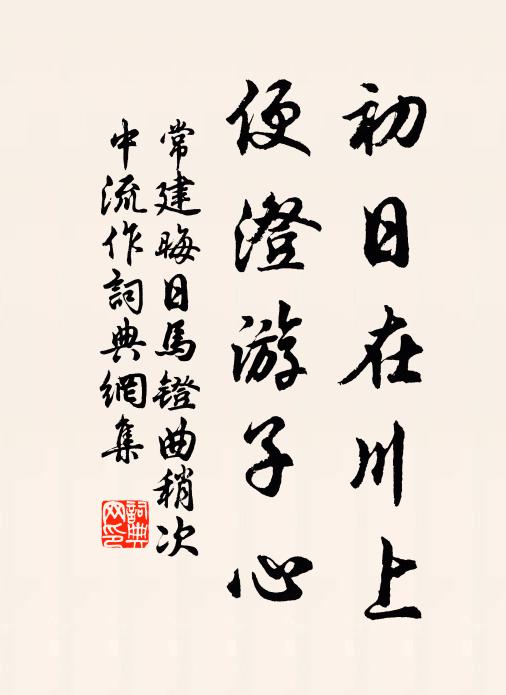 初日在川上
便澄游子心
常建晦日馬鐙曲稍次
中流作詞典網集
詞典
网印